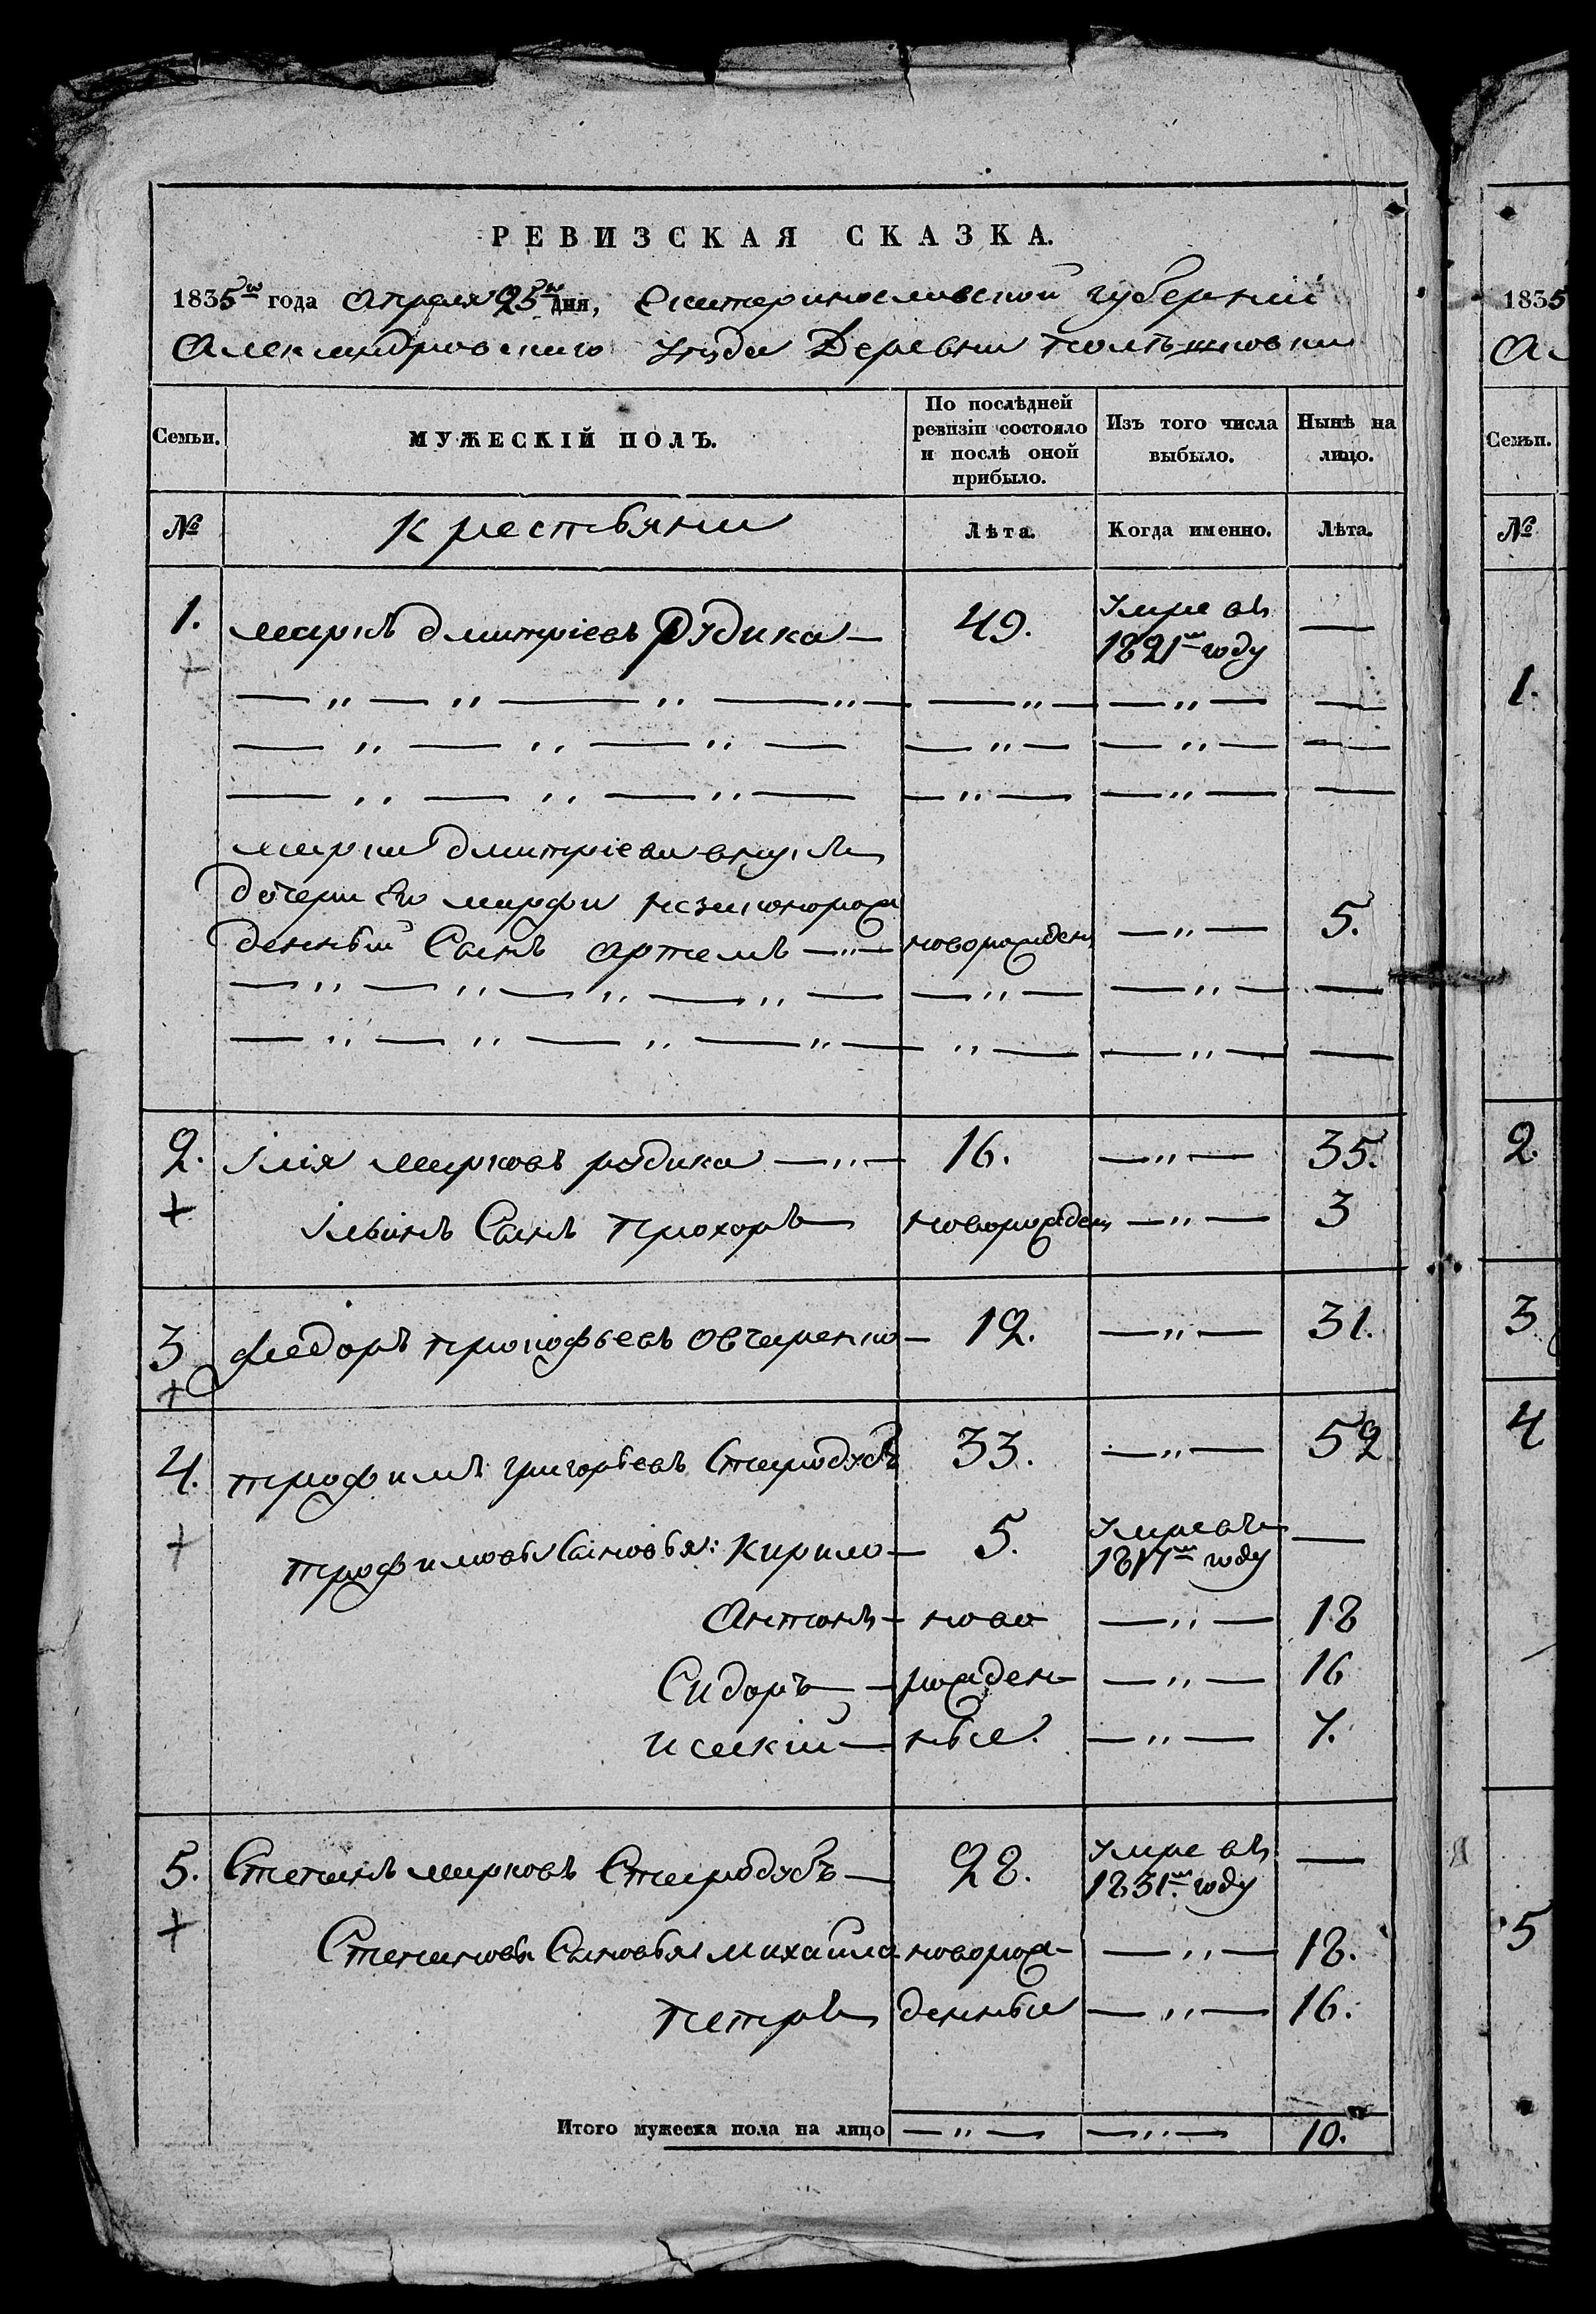 РЕВИЗСКАЯ СКАЗКА.
1835го года Апреля 25го дня, Екатеринославской губерніи
Александровскаго уезда Деревни
Семьи. МУЖЕСКІЙ ПОЛЪ. По послѣдней ревизіи состояло и послѣ оной прибыло. Изъ того числа выбыло. Нынѣ на лицо.
№ Крестьяни Лѣта. Когда именно. Лѣта.
1. Маркъ Дмитріевъ Рудика — 49. Умре въ 1821м году —
— „ — „ — „ — „ — — „ — — „ — —
— „ — „ — „ — — „ — — „ — —
— „ — „ — „ — — „ — — „ — —
Марка Дмитріева внукъ
дочери Его Марфи незаконорож
денный Сынъ Артемъ — „ — новорожден — „ — 5.
— „ — „ — „ — „ — — „ — — „ — —
— „ — „ — „ — „ — „ — — „ — —
2. Илія Марковъ Рудика — „ — 16. — „ — 35.
+ Ильинъ Сынъ Прохоръ новорожден — „ — 3
3 Федоръ Прокофьевъ Овчаренко — 12. — „ — 31.
+
4. Трофимъ Григорьевъ Стародубъ 33. — „ — 52
+ Трофимовы Сыновья: Кирило — 5. Умре въ 1817м году —
Антонъ — ново — „ — 18
Сидоръ — рожден — „ — 16
Исакій — ные. — „ — 7.
5. Степанъ Марковъ Стародубъ — 28. Умре въ 1831м году —
+ Степановы Сыновья Михайла новорож — „ — 18.
Петръ денные — „ — 16.
Итого мужеска пола на лицо — „ — — „ — 10.
1835
Ал
Семьи.
№
1.
2.
3
4
5